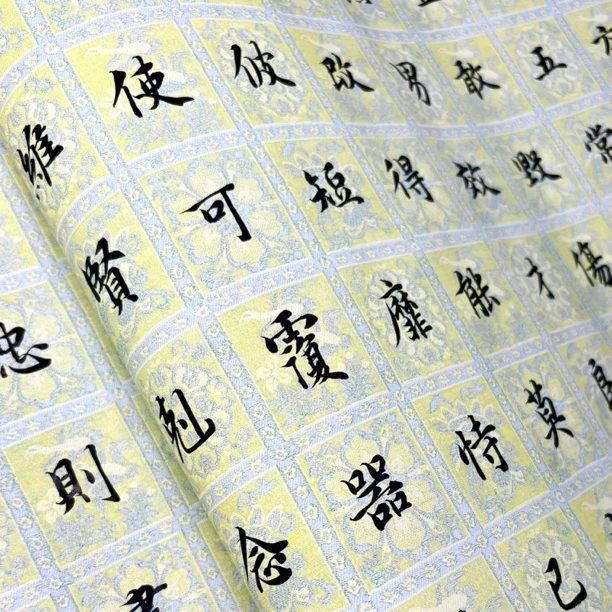 五常
敢毀傷
男效才良
改得能莫
彼短靡恃己
使可覆器
維賢剋念
忠則